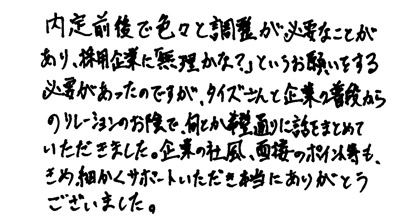 内定前後で色々と調整が必要なことが
あり、採用企業に「無理かな?」というお願いをする
必要があったのですが、タイズさんと企業の普段から
のリレーションのお陰で、何とか希望通りに話をまとめて
いただきました。企業の社風、面接のポイント等も、
きめ細かくサポートいただき本当にありがとう
ございました。